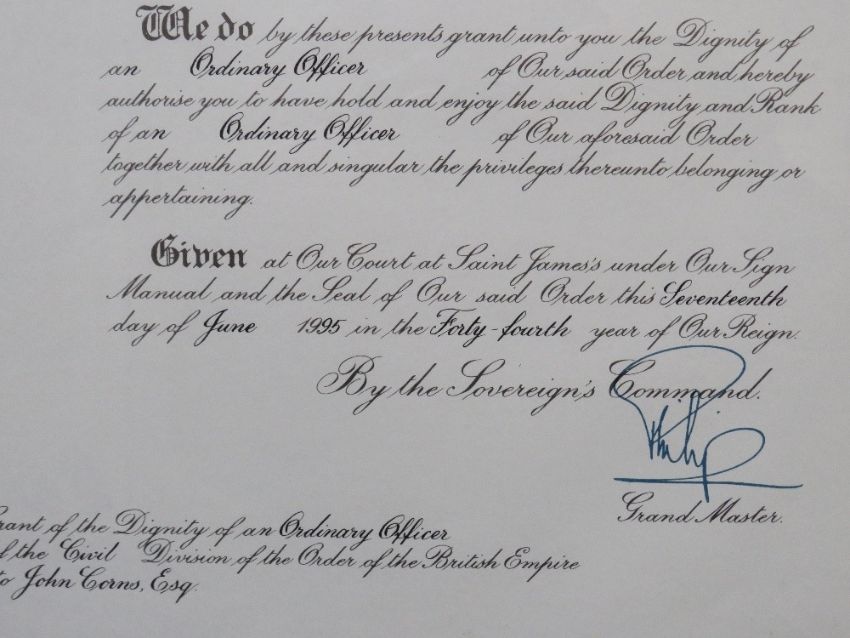 We do by these presents grant unto you the Dignity of
an Ordinary Officer of Our said Order and hereby
authorise you to have hold and enjoy the said Dignity and Rank
of an Ordinary Officer of Our aforesaid Order
together with all and singular the privileges thereunto belonging or
appertaining.
Given at Our Court at Saint James's under Our Sign
Manual and the Seal of Our said Order this Seventeenth
day of June 1995 in the Forty-fourth year of Our Reign.
By the Sovereign's Command.
Philip
Grand Master.
rant of the Dignity of an Ordinary Officer
f the Civil Division of the Order of the British Empire
to John Corns, Esq.